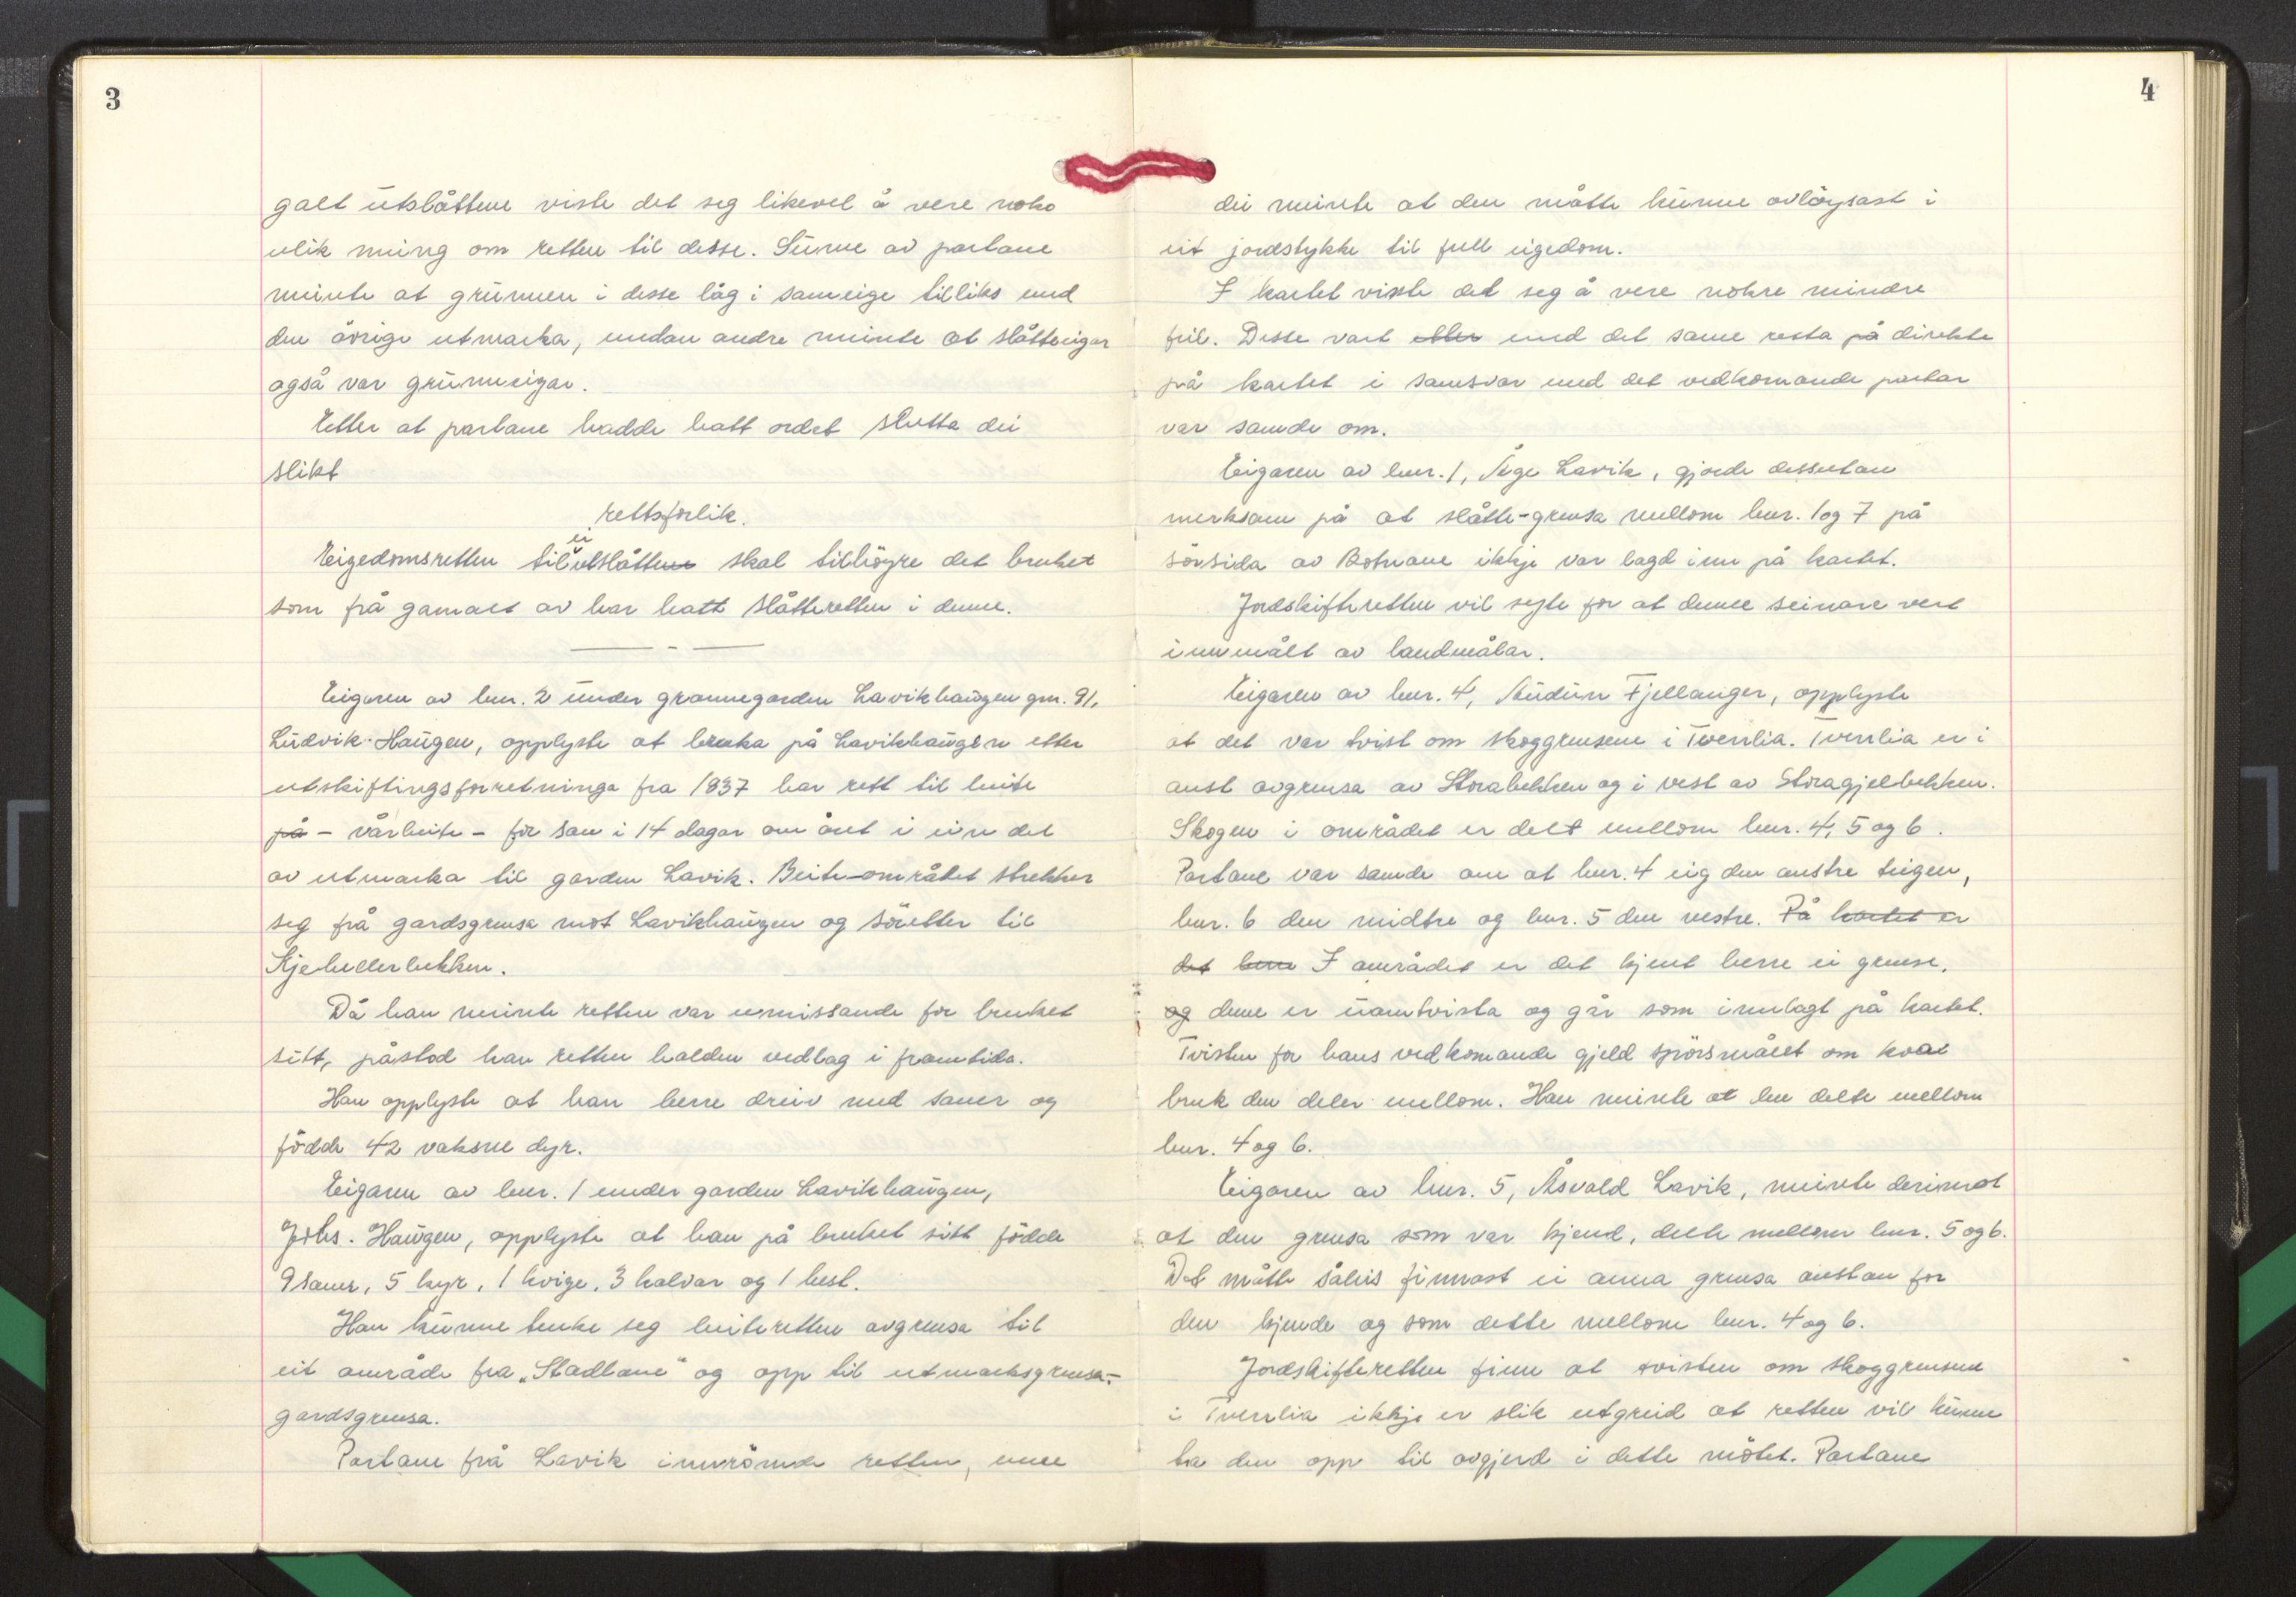 3
galt utslåttene viste det seg likevel å vere noko
ulik meing om retten til desse. Sume av partane
meinte at grunnen i desse låg i sameige tilliks med
den övrige utmarka, medan andre meinte at slåtteeigar
også var grunneigar.
Etter at partane hadde hatt ordet slutta dei
slikt
rettsforlik.
Eigedomsretten til ei utslåtte skal tilhöyre det bruket
som frå gamalt av har hatt slåtteretten i denne.
— - —
Eigaren av bnr. 2 under grannegarden Lavikhaugen gnr. 91,
Ludvik Haugen, opplyste at bruka på Lavikhaugen etter
utskiftingsforretninga fra 1937 har rett til beite
på - vårbeite - for sau i 14 dagar om året i ein del
av utmarka til garden Lavik. Beite-området strekker
seg frå gardsgrensa mot Lavikhaugen og söretter til
Kjehellerbekken.
Då han meinte retten var umissande for bruket
sitt, påstod han retten halden vedlag i framtida.
Han opplyste at han berre dreiv med sauer og
födde 42 vaksne dyr.
Eigaren av bnr. 1 under garden Lavikhaugen,
Johs. Haugen, opplyste at han på bruket sitt födde
9 sauer, 5 kyr, 1 kvige, 3 kalvar og 1 hest.
Han kunne tenke seg beiteretten avgrensa til
eit område fra „Stadlane" og opp til utmarksgrensa-
gardsgrensa.
Partane frå Lavik innrömde retten, men
4
dei meinte at den måtte kunne avlöysast i
eit jordstykke til full eigedom.
I kartet viste det seg å vere nokre mindre
feil. Desse vart etter med det same retta på direkte
på kartet i samsvar med det vedkomande partar
var samde om.
Eigaren av bnr. 1, Åge Lavik, gjorde dessutan
merksam på at slåtte-grensa mellom bnr. 1 og 7 på
sörsida av Botnane ikkje var lagd inn på kartet.
Jordskifteretten vil syte for at denne seinare vert
innmålt av landmålar.
Eigaren av bnr. 4, Audun Fjellanger, opplyste
at det var tvist om skoggrensene i Tverrlia. Tverrlia er i
aust avgrensa av Storabekken og i vest av Storagjelbekken.
Skogen i området er delt mellom bnr. 4, 5 og 6.
Partane var samde om at bnr. 4 eig den austre teigen,
bnr. 6 den midtre og bnr. 5 den vestre. På kartet er
det berre I området er det kjent berre ei grense,
og denne er uomtvista og går som innlagt på kartet.
Tvisten for hans vedkomande gjeld spörsmålet om kva
bruk den deler mellom. Han meinte at den delte mellom
bnr. 4 og 6.
Eigaren av bnr. 5, Åsvald Lavik, meinte derimot
at den grensa som var kjend, delte mellom bnr. 5 og 6.
Det måtte såleis finnast ei anna grensa austan for
den kjende og som delte mellom bnr. 4 og 6.
Jordskifteretten finn at tvisten om skoggrensene
i Tverrlia ikkje er slik utgreid at retten vil kunne
ta den opp til avgjerd i dette mötet. Partane